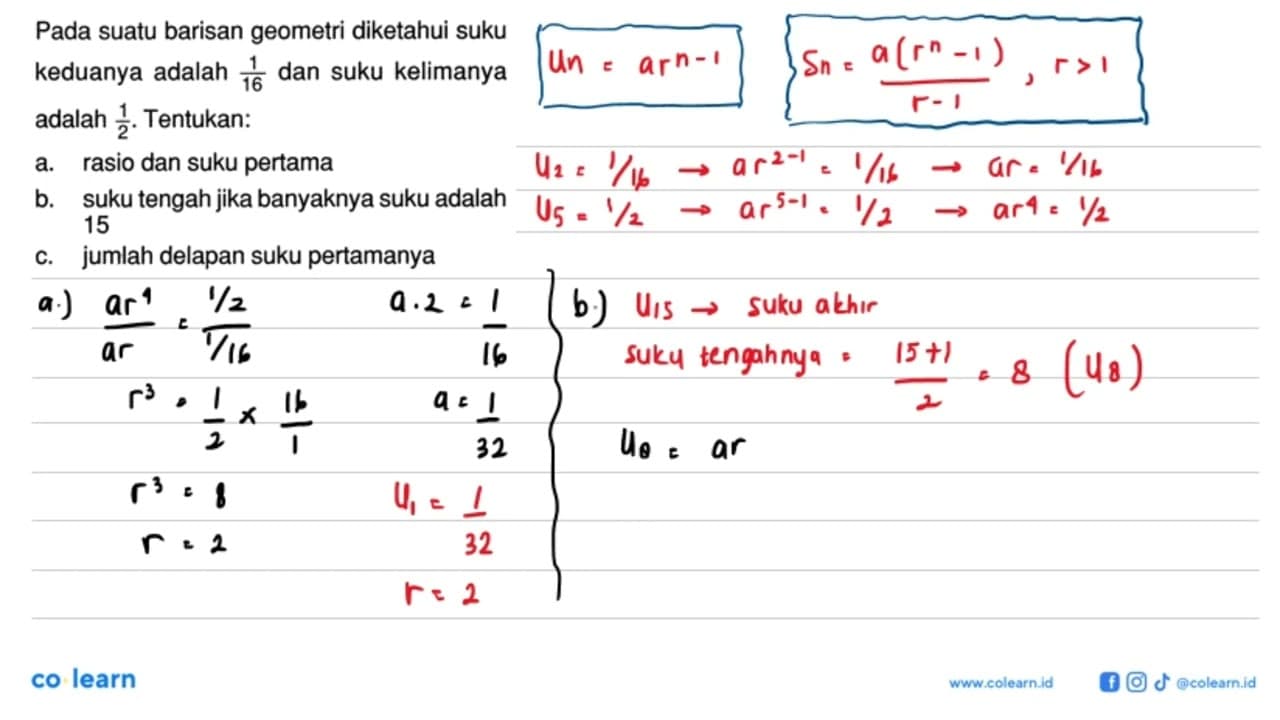 Pada suatu barisan geometri diketahui suku
keduanya adalah 1/16 dan suku kelimanya
adalah 1/2. Tentukan:
a. rasio dan suku pertama
b. suku tengah jika banyaknya suku adalah
15
c. jumlah delapan suku pertamanya
Un = ar^n-1
Sn = a(r^n - 1)/r - 1 , r > 1
U2 = 1/16 → ar^2-1 = 1/16 → ar = 1/16
U5 = 1/2 → ar^5-1 = 1/2 → ar^4 = 1/2
a.) ar^4/ar = 1/2 / 1/16
r^3 = 1/2 × 16/1
r^3 = 8
r = 2
a . 2 = 1/16
a = 1/32
U1 = 1/32
r = 2
b.) U15 → suku akhir
suku tengahnya = 15+1/2 = 8 (U8)
U8 = ar
co learn
www.colearn.id
@colearn.id